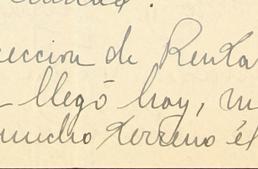 eccion de Renta
llegó hoy, m
mucho terreno él